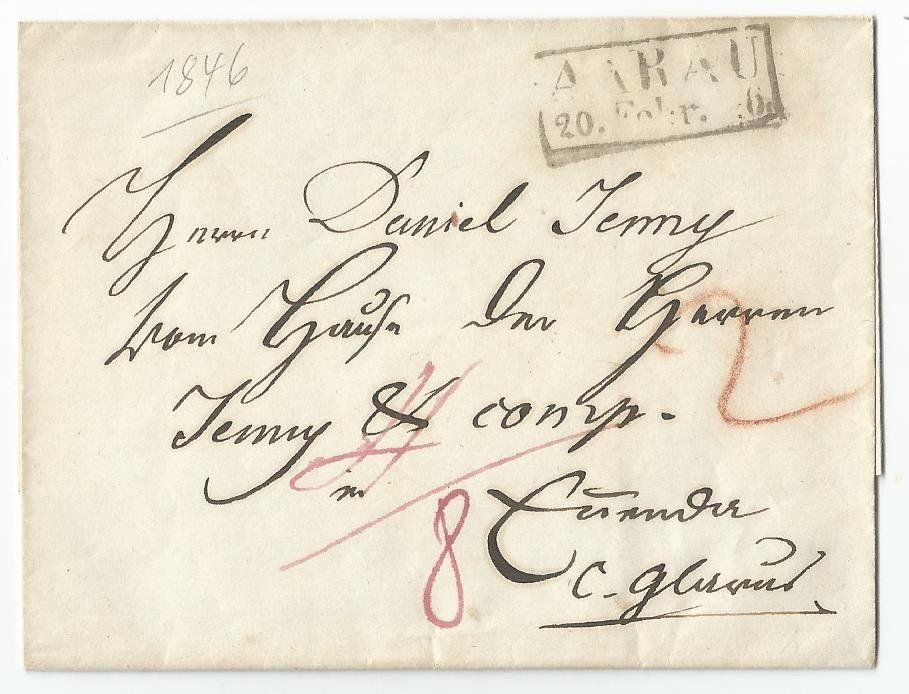 1846
AARAU
20. Febr. 46.
Herrn Daniel Jenny
vom Hause der Herren
Jenny & comp.
in
8 Ennenda
C. Glarus
2